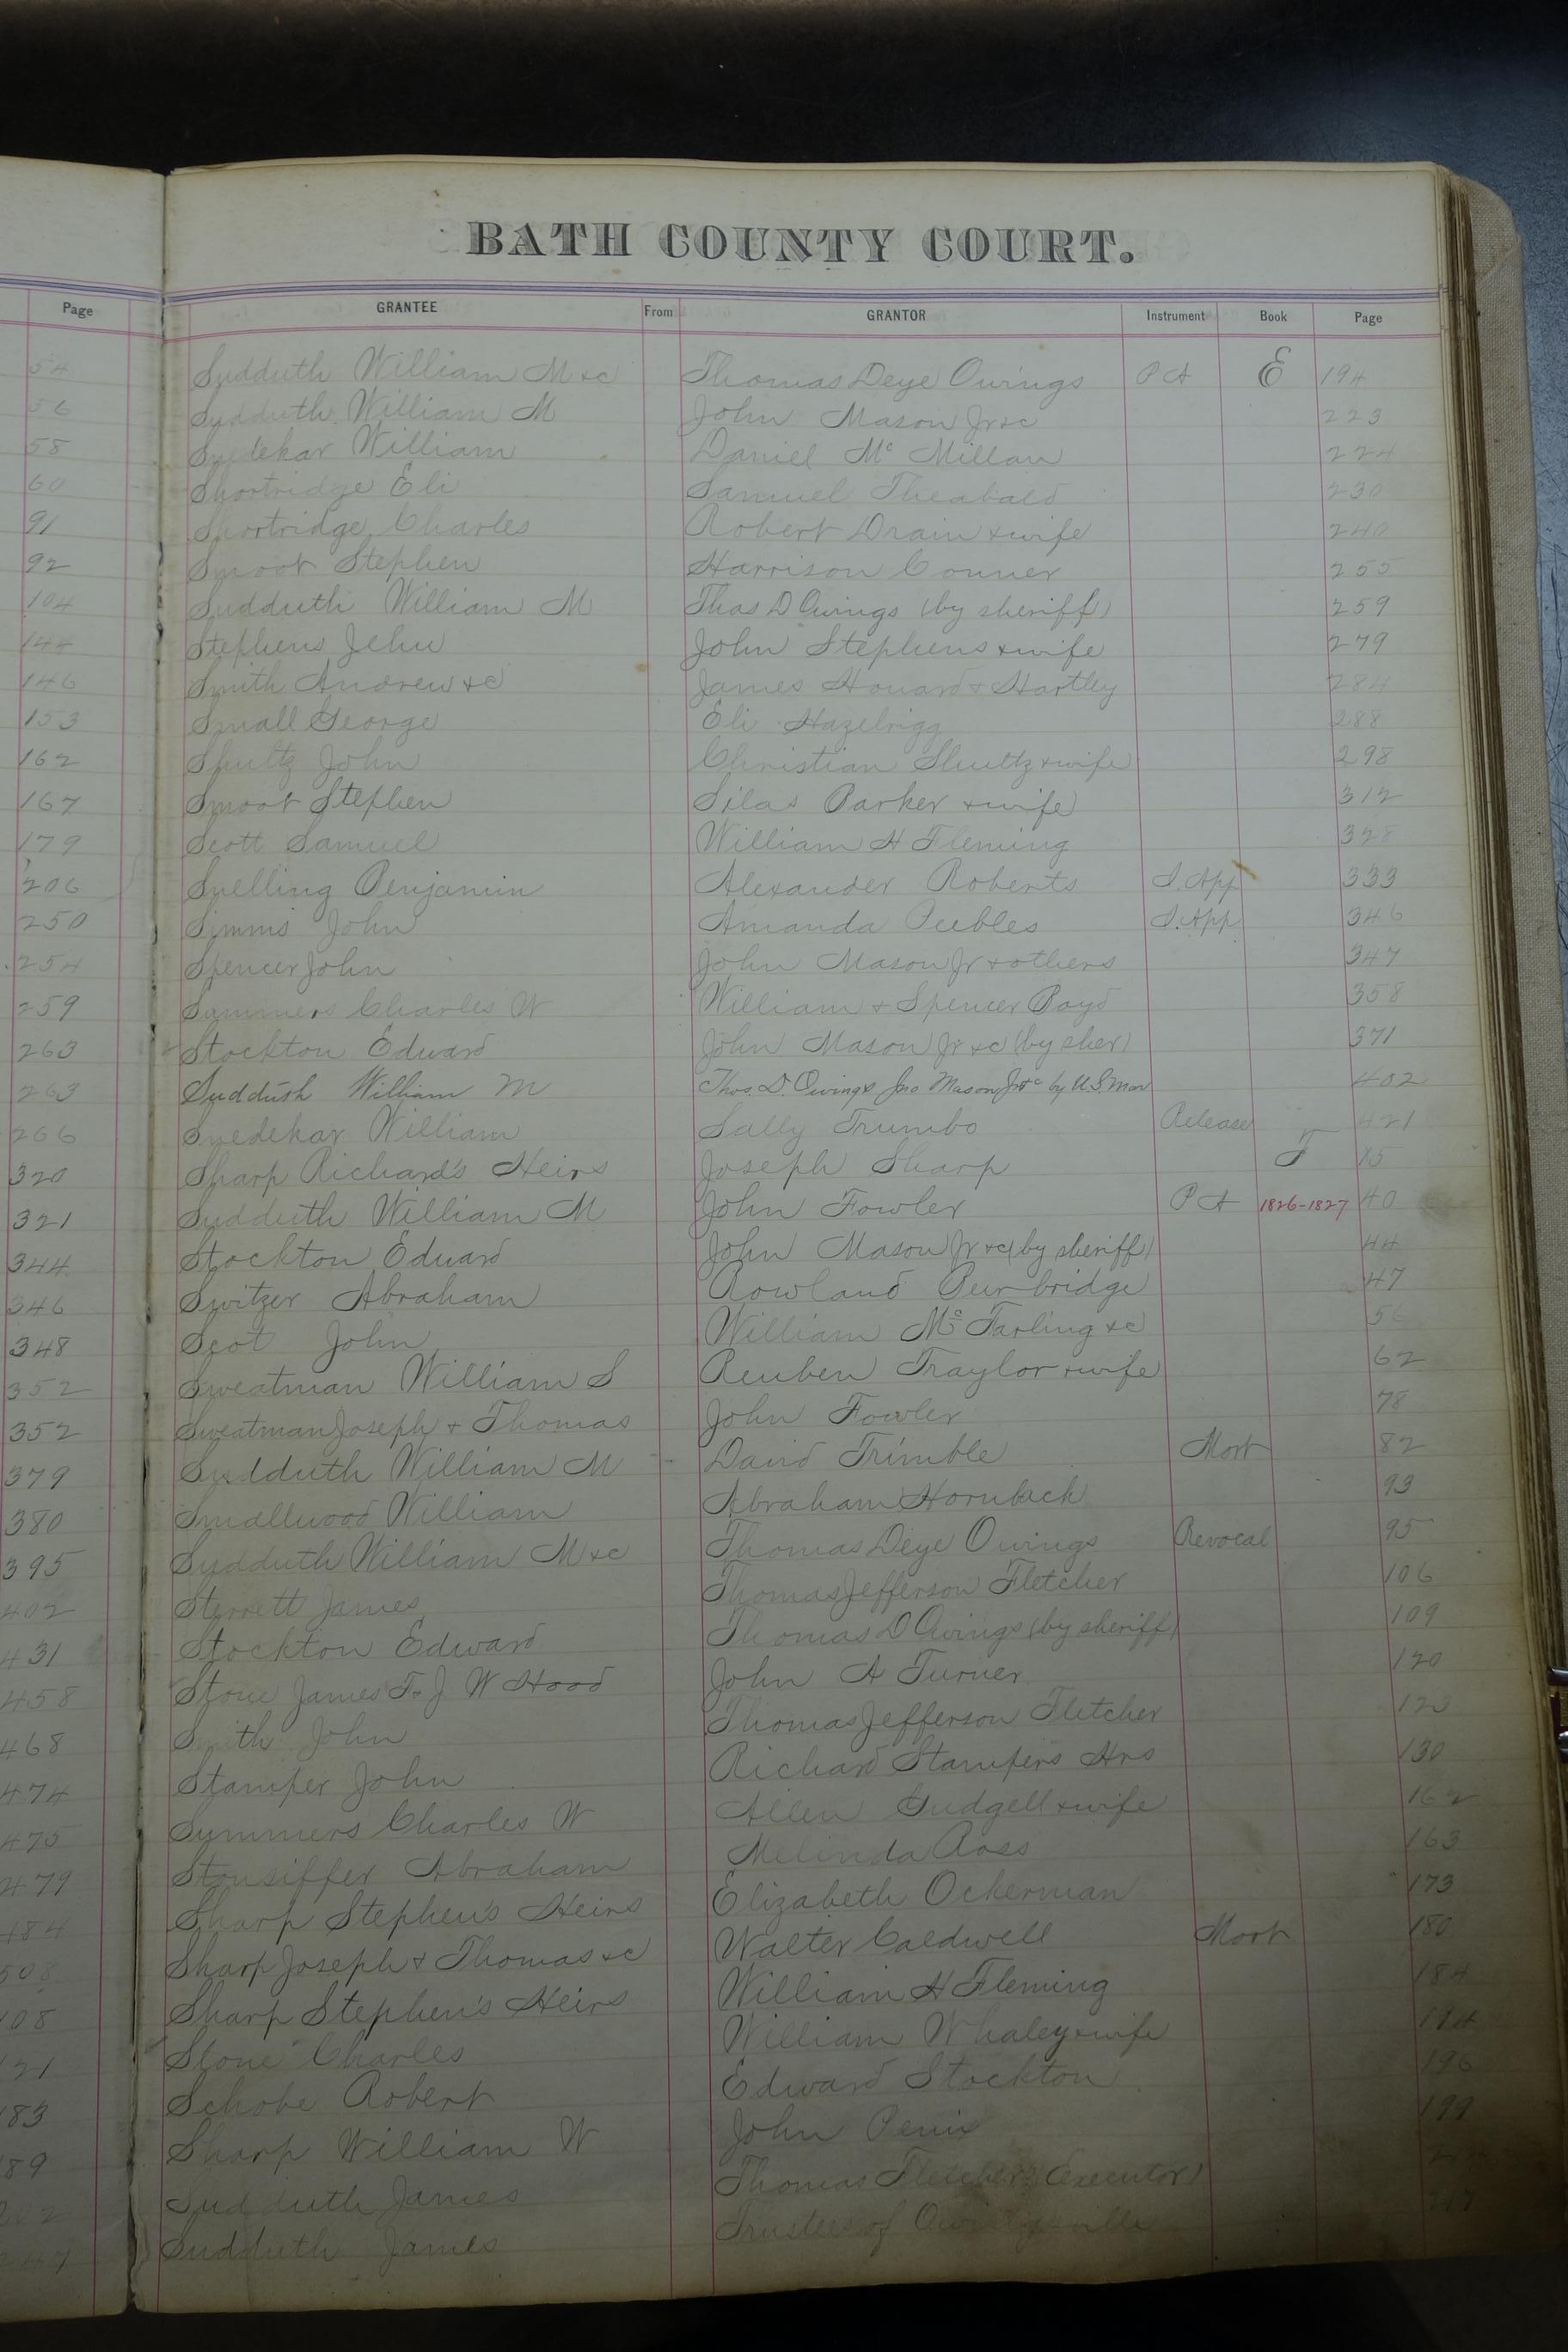 BATH COUNTY COURT.
Page GRANTEE From GRANTOR Instrument Book Page
54 Sudduth William M &c Thomas Deye Owings P A E 194
56 Sudduth William M John Mason Jr &c 223
58 Snedekar William Daniel Mc Millan 224
60 Shortridge Eli Samuel Theabald 230
91 Shortridge Charles Robert Drain & wife 240
92 Smoot Stephen Harrison Conner 255
104 Sudduth William M Thos D Owings (by sheriff) 259
144 Stephens Jehu John Stephens & wife 279
146 Smith Andrew &c James Howard & Hartley 284
153 Small George Eli Hazelrigg 288
162 Shultz John Christian Shultz & wife 298
167 Smoot Stephen Silas Parker & wife 312
179 Scott Samuel William H Fleming 328
206 Snelling Benjamin Alexander Roberts I. App 333
250 Simms John Amanda Peebles I. App 346
254 Spencer John John Mason Jr & others 347
259 Summers Charles W William & Spencer Boyd 358
263 Stockton Edward John Mason Jr &c (by sher) 371
263 Sudduth William M Thos. D. Owings Jno Mason Jr &c by U.S. Mar 402
266 Snedekar William Sally Trumbo Release 421
320 Sharp Richard's Heirs Joseph Sharp F 15
321 Sudduth William M John Fowler P A 1826-1827 40
344 Stockton Edward John Mason Jr &c (by sheriff) 44
346 Switzer Abraham Rowland Burbridge 47
348 Scot John William Mc Farling &c 56
352 Sweatman William S Reuben Traylor & wife 62
352 Sweatman Joseph & Thomas John Fowler 78
379 Sudduth William M David Trimble Mort 82
380 Smallwood William Abraham Hornback 93
395 Sudduth William M &c Thomas Deye Owings Revocal 95
402 Sterrett James Thomas Jefferson Fletcher 106
431 Stockton Edward Thomas D Owings (by sheriff) 109
458 Stone James To J W Hood John A Turner 120
468 Smith John Thomas Jefferson Fletcher 123
474 Stamper John Richard Stampers Hrs 130
475 Summers Charles W Allen Gudgell & wife 162
479 Stonsiffer Abraham Melinda Ross 163
484 Sharp Stephen's Heirs Elizabeth Ockerman 173
508 Sharp Joseph & Thomas &c Walter Caldwell Mort 180
108 Sharp Stephen's Heirs William H Fleming 184
121 Stone Charles William Whaley & wife 194
183 Schobe Robert Edward Stockton 196
189 Sharp William W John Penix 199
202 Sudduth James Thomas Fletcher (Executor)
Sudduth James Trustees of Owingsville 217